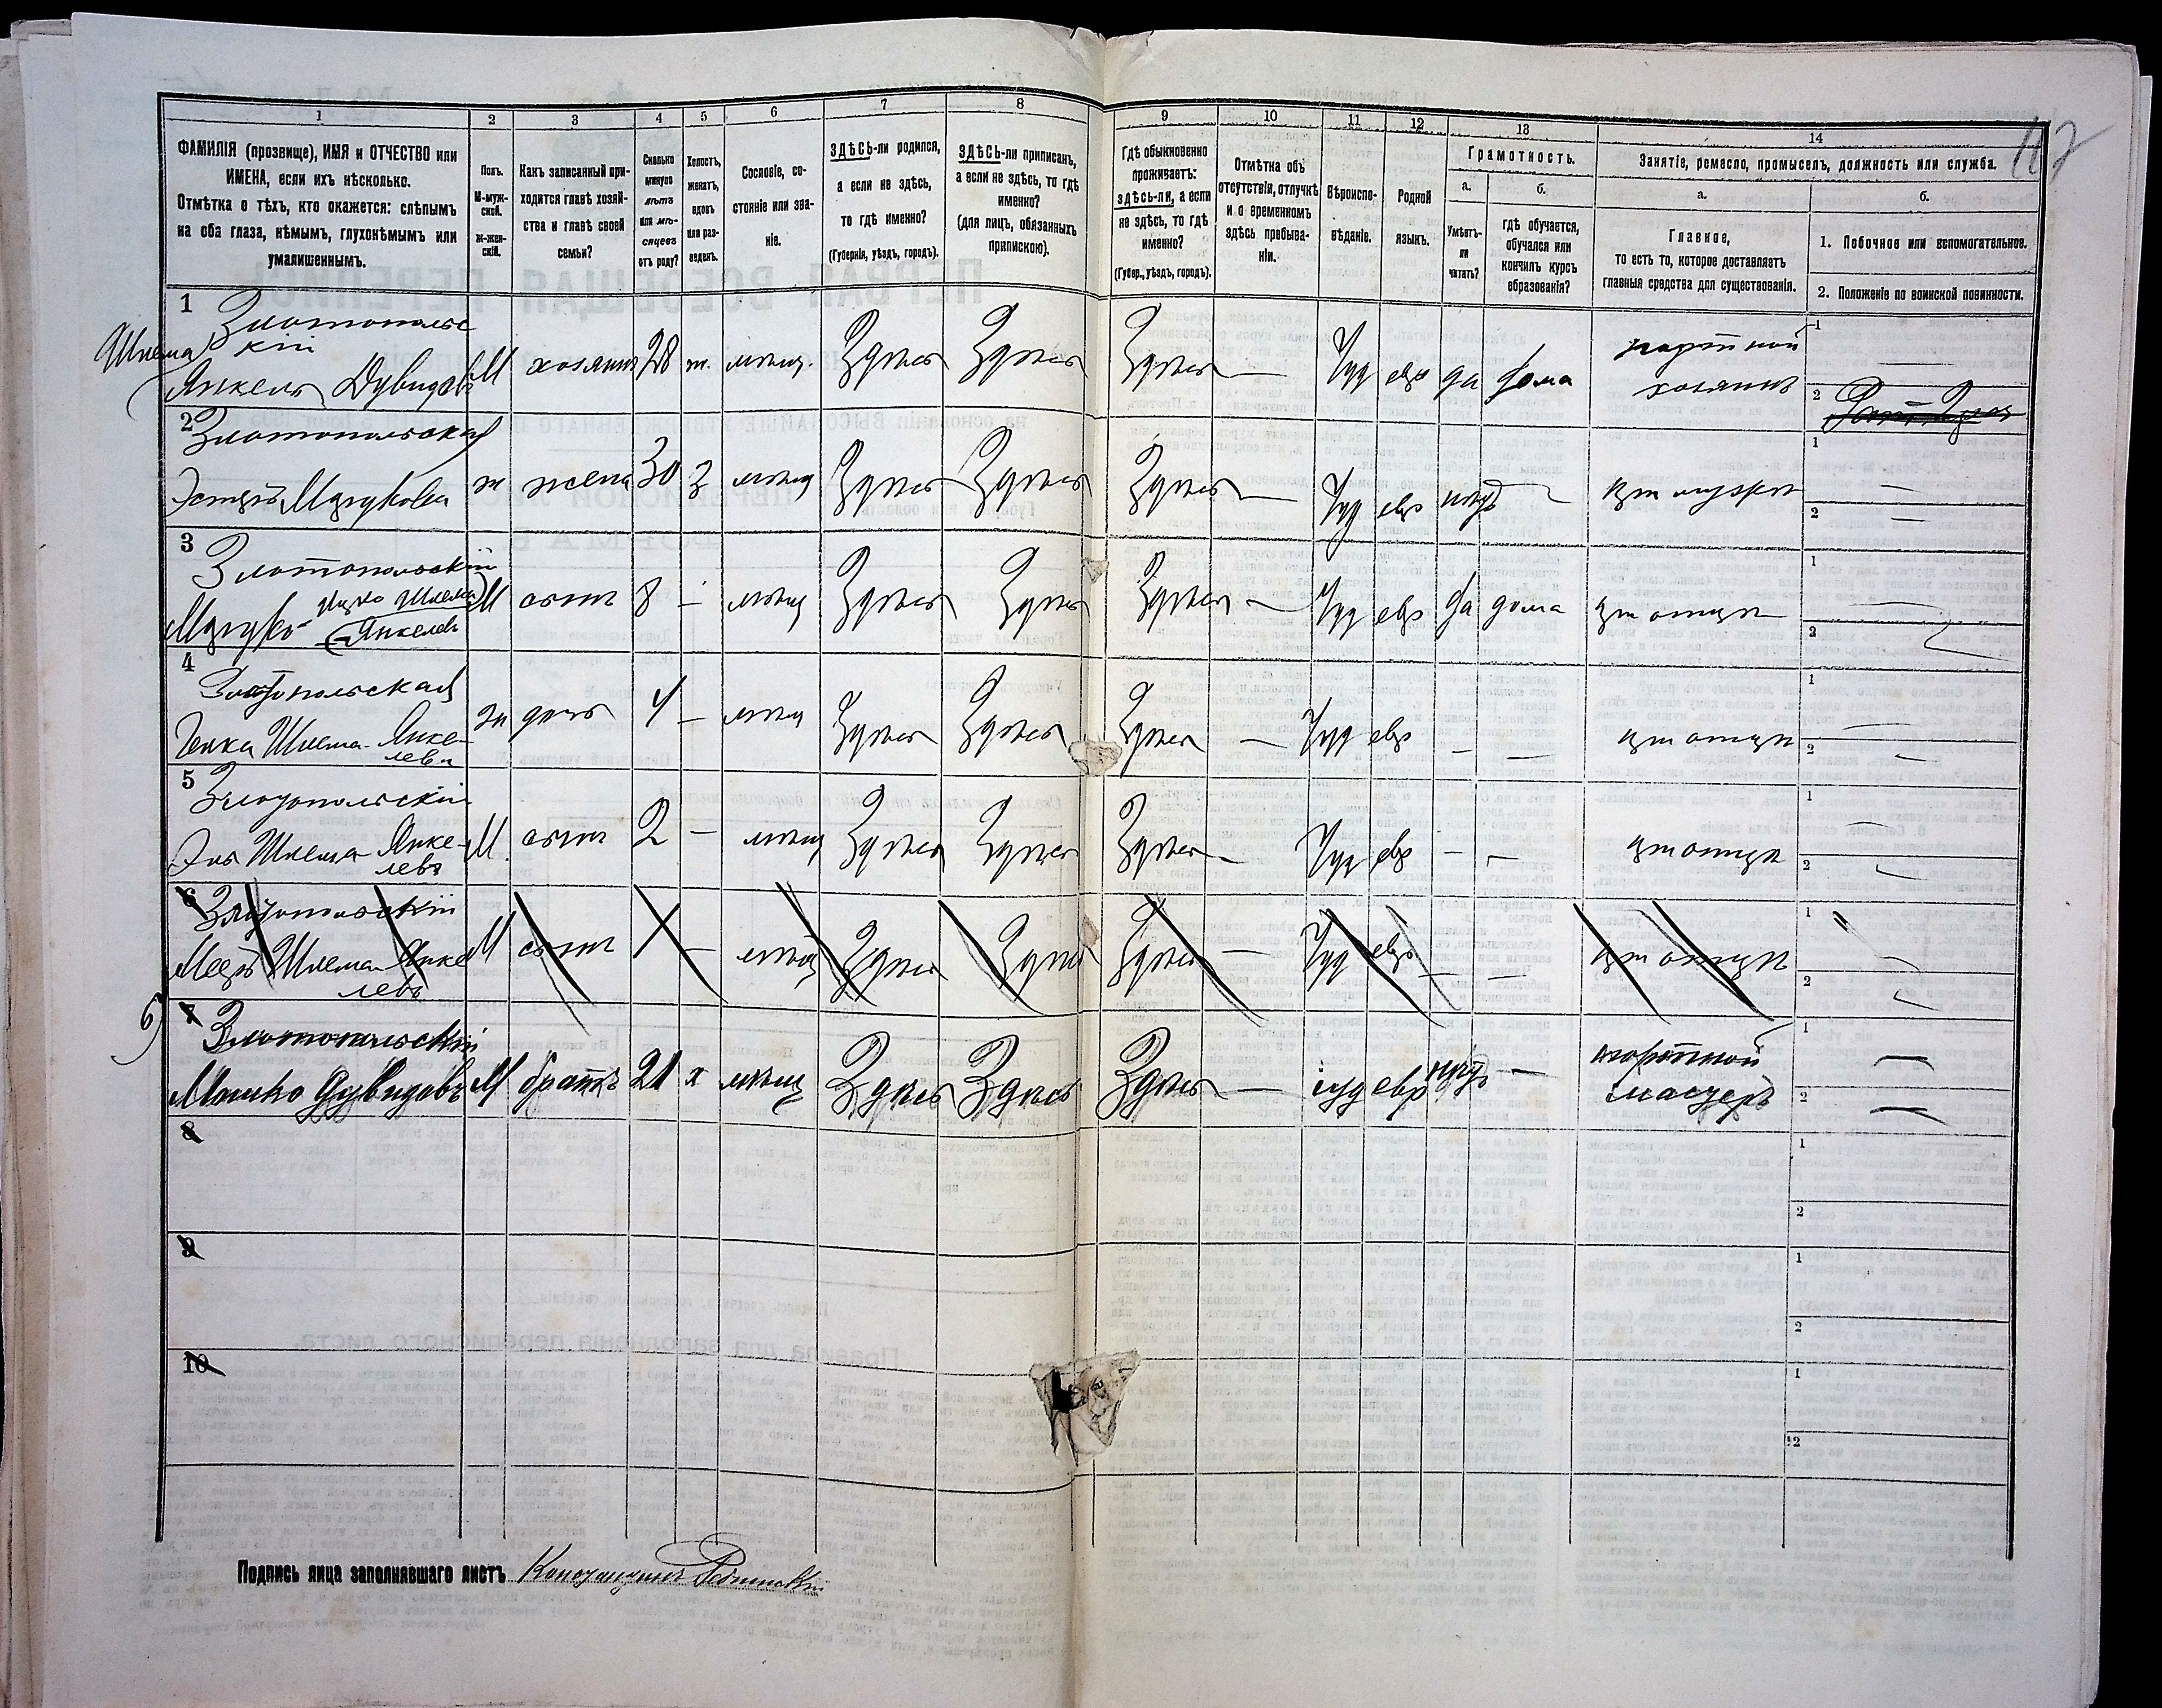 1 2 3 4 5 6 7 8 9 10 11 12 13 14
ФАМИЛІЯ (прозвище), ИМЯ и ОТЧЕСТВО или
ИМЕНА, если ихъ нѣсколько.
Отмѣтка о тѣхъ, кто окажется: слѣпымъ
на оба глаза, нѣмымъ, глухонѣмымъ или
умалишеннымъ.
Полъ.
М-муж-
ской.
Ж-жен-
скій.
Какъ записанный при-
ходится главѣ хозяй-
ства и главѣ своей
семьи?
Сколько
минуло
лѣтъ
или мѣ-
сяцевъ
отъ роду?
Холостъ,
женатъ,
вдовъ
или раз-
веденъ.
Сословіе, со-
стояніе или зва-
ніе.
ЗДѢСЬ-ли родился,
а если не здѣсь,
то гдѣ именно?
(Губернія, уѣздъ, городъ).
ЗДѢСЬ-ли приписанъ,
а если не здѣсь, то гдѣ
именно?
(для лицъ, обязанныхъ
припискою).
Гдѣ обыкновенно
проживаетъ:
здѣсь-ли, а если
не здѣсь, то гдѣ
именно?
(Губер., уѣздъ, городъ).
Отмѣтка объ
отсутствіи, отлучкѣ
и о временномъ
здѣсь пребыва-
ніи.
Вѣроиспо-
вѣданіе.
Родной
языкъ.
Грамотность.
а. б.
Умѣетъ-
ли
читать?
гдѣ обучается,
обучался или
кончилъ курсъ
образованія?
Занятіе, ремесло, промыселъ, должность или служба.
а. б.
Главное,
то есть то, которое доставляетъ
главныя средства для существованія.
1. Побочное или вспомогательное.
2. Положеніе по воинской повинности.
1 Злотопольс
кій
Шлема
Янкель Дувидовъ М хозяинъ 28 ж. мѣщ. Здѣсь Здѣсь Здѣсь — Іуд евр да дома портной
хозяинъ
1 —
2
2 Злотопольская
Эстеръ Мошкова ж жена 30 З мѣщ Здѣсь Здѣсь Здѣсь — Іуд евр нѣтъ — при мужѣ
1 —
2 —
3 Злотопольскій
Шлема
Янкелевъ М сынъ 8 — мѣщ Здѣсь Здѣсь Здѣсь — Іуд евр да дома при отцѣ
1 —
2
4 Злотопольская
Генка Шлема-Янке-
лева ж дочь 4 — мѣщ Здѣсь Здѣсь Здѣсь — Іуд евр — — при отцѣ
1 —
2 —
5 Злотопольскій
Шлема-Янке-
левъ М. сынъ 2 — мѣщ Здѣсь Здѣсь Здѣсь — Іуд евр — — при отцѣ
1 —
2 —
6 Злотопольскій
Шлема-Янке
левъ М сынъ — мѣщ Здѣсь Здѣсь Здѣсь — Іуд евр — — при отцѣ
1 —
2 —
6
7 Злотопольскій
Мошко Дувидовъ М братъ 21 х мѣщ Здѣсь Здѣсь Здѣсь — іуд евр нѣтъ — портной
мастеръ
1 —
2 —
8 1
2
9 1
2
10 1
2
Подпись лица заполнявшаго листъ Константинъ